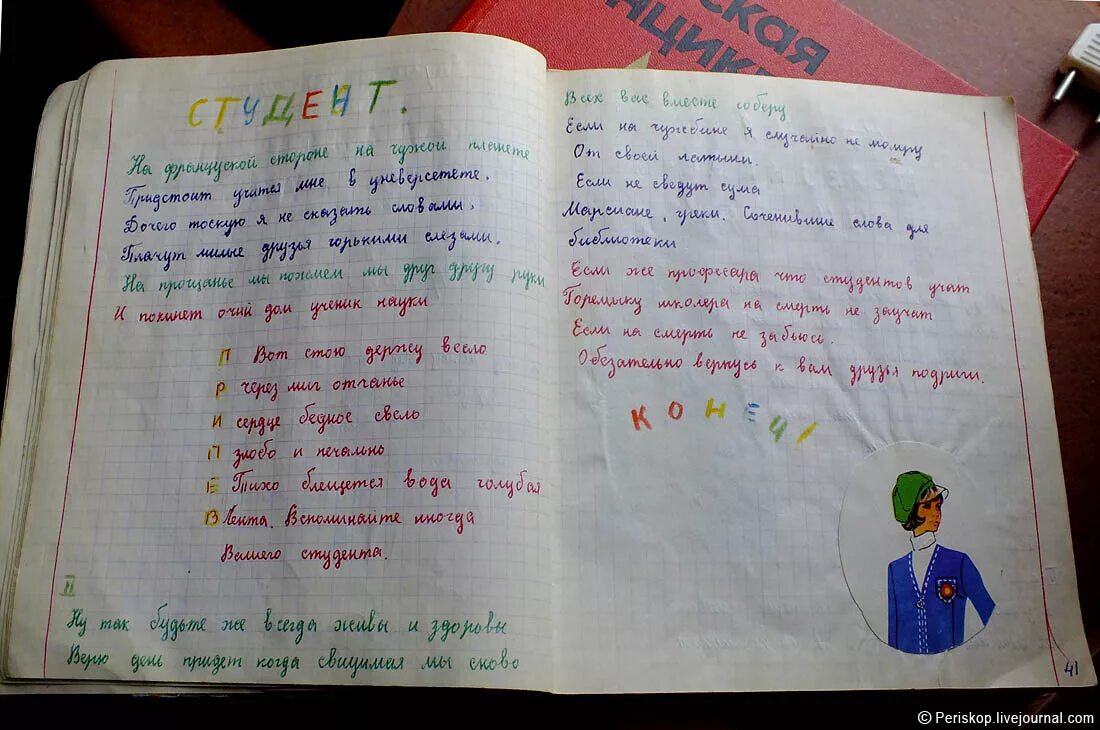 СТУДЕНТ.
На француской стороне на чужой планете
Придстоит учится мне в уневерсетете.
Дочего тоскую я не сказать словами,
Плачут милые друзья горькими слезами.
На прощанье мы пожмем мы друг другу руки
И покинет очий дом ученик науки
П Вот стою держу весло
Р через миг отчанье
И сердце бедное свело
П злобо и печально
Е Тихо блещется вода голубая
В Лента. Вспоминайте иногда
Вашего студента.
II
Ну так будьте же всегда живы и здоровы
Верю день придет когда свидимая мы снова
Всех вас вместе соберу
Если на чужбине я случайно не помру
От своей латыни.
Если не сведут сума
Марсиане, греки. Соченившие слова для
библиотеки
Если же професара что студентов учат
Горемыку школера на смерть не заучат
Если на смерть не забьюсь.
Обезательно вернусь к вам друзья подриги.
КОНЕЦ!
41
ская
ацик
© Periskop.livejournal.com